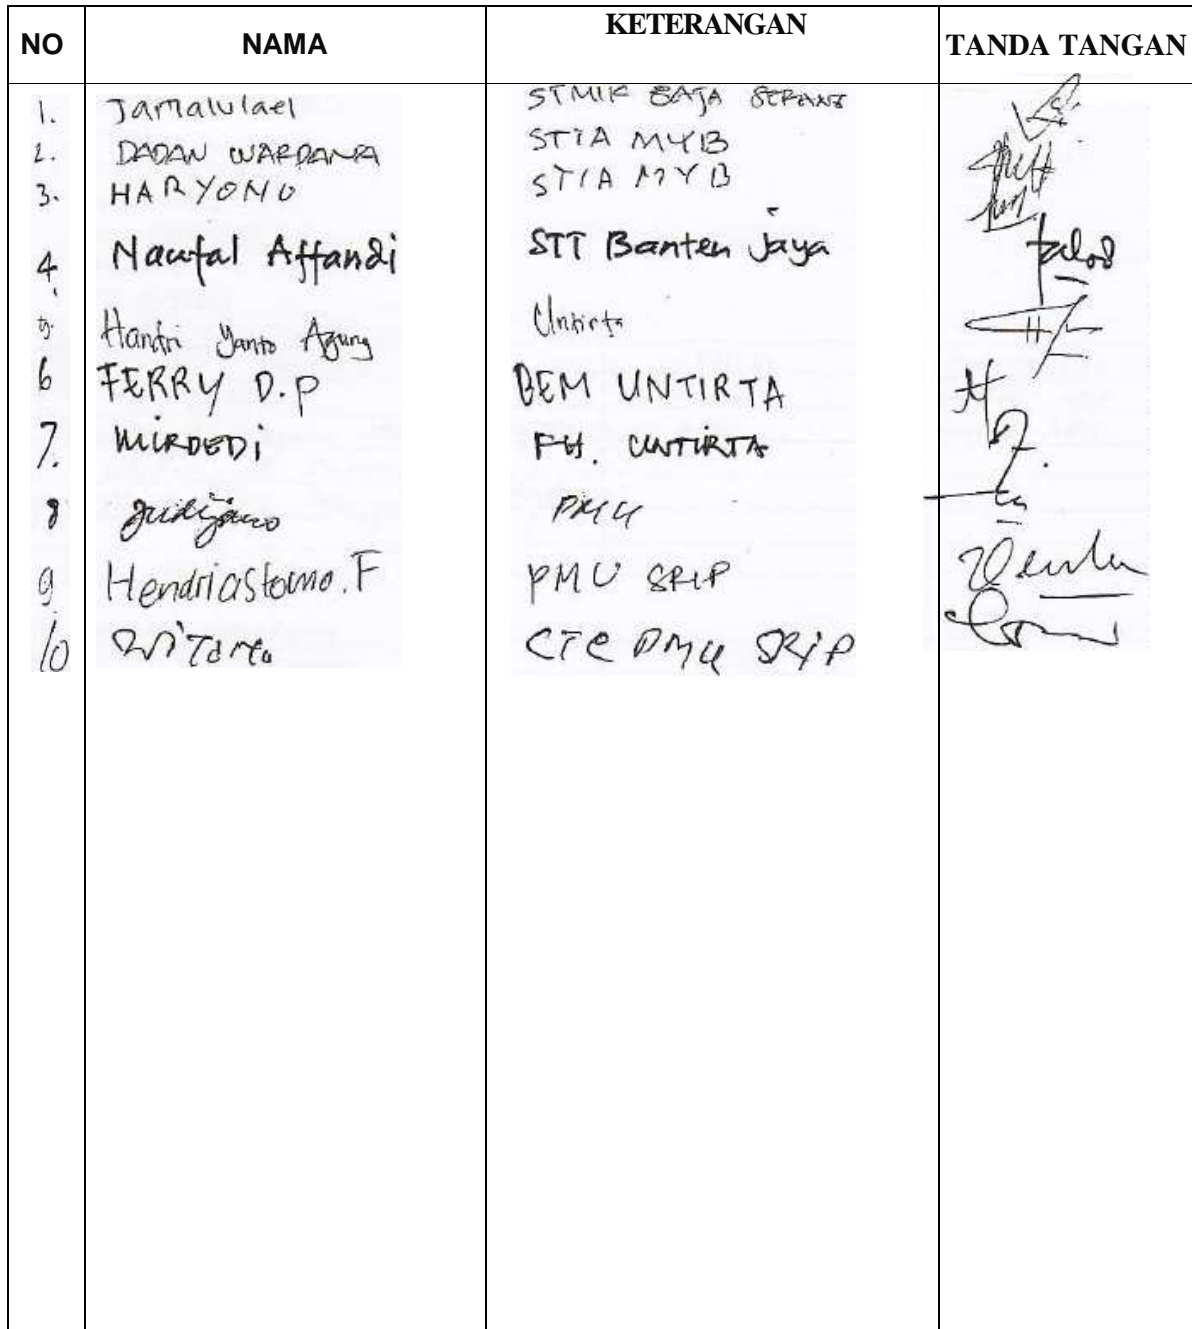 NO NAMA KETERANGAN TANDA TANGAN
1. Jamalulael STMIK RAJA SERANG
2. DADAN WARDANA STIA MYB
3. HARYONO STIA MYB
4. Naufal Affandi STT Banten Jaya
5. Hantri Yanto Agung Untirta
6 FERRY D.P BEM UNTIRTA
7. MIRDEDi FH. UNTIRTA
8 PMU
9 Hendriastomo.F PMU SRIP
10 CTC PMU SRIP